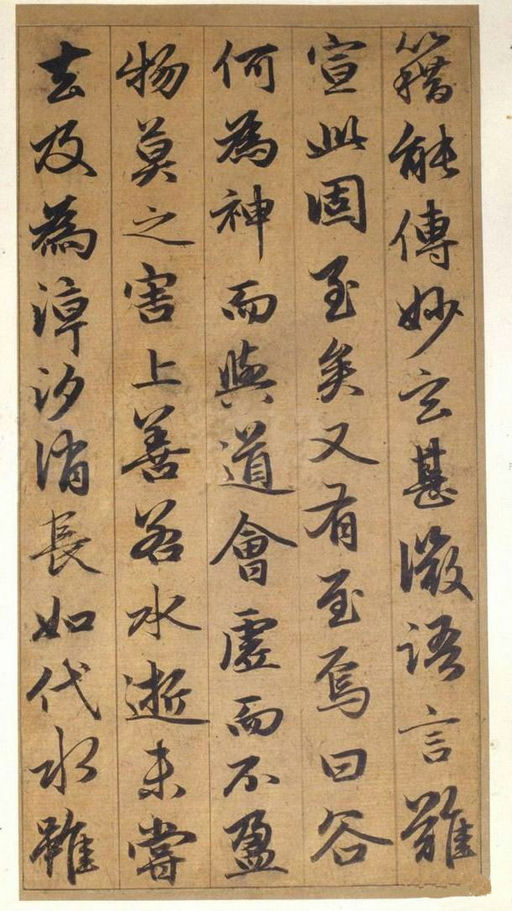 籍能傳妙玄甚微語言難
宣此固至矣又有至焉曰谷
何為神而與道會虛而不盈
物莫之害上善若水逝未嘗
去及為漳汐消長如代水雖